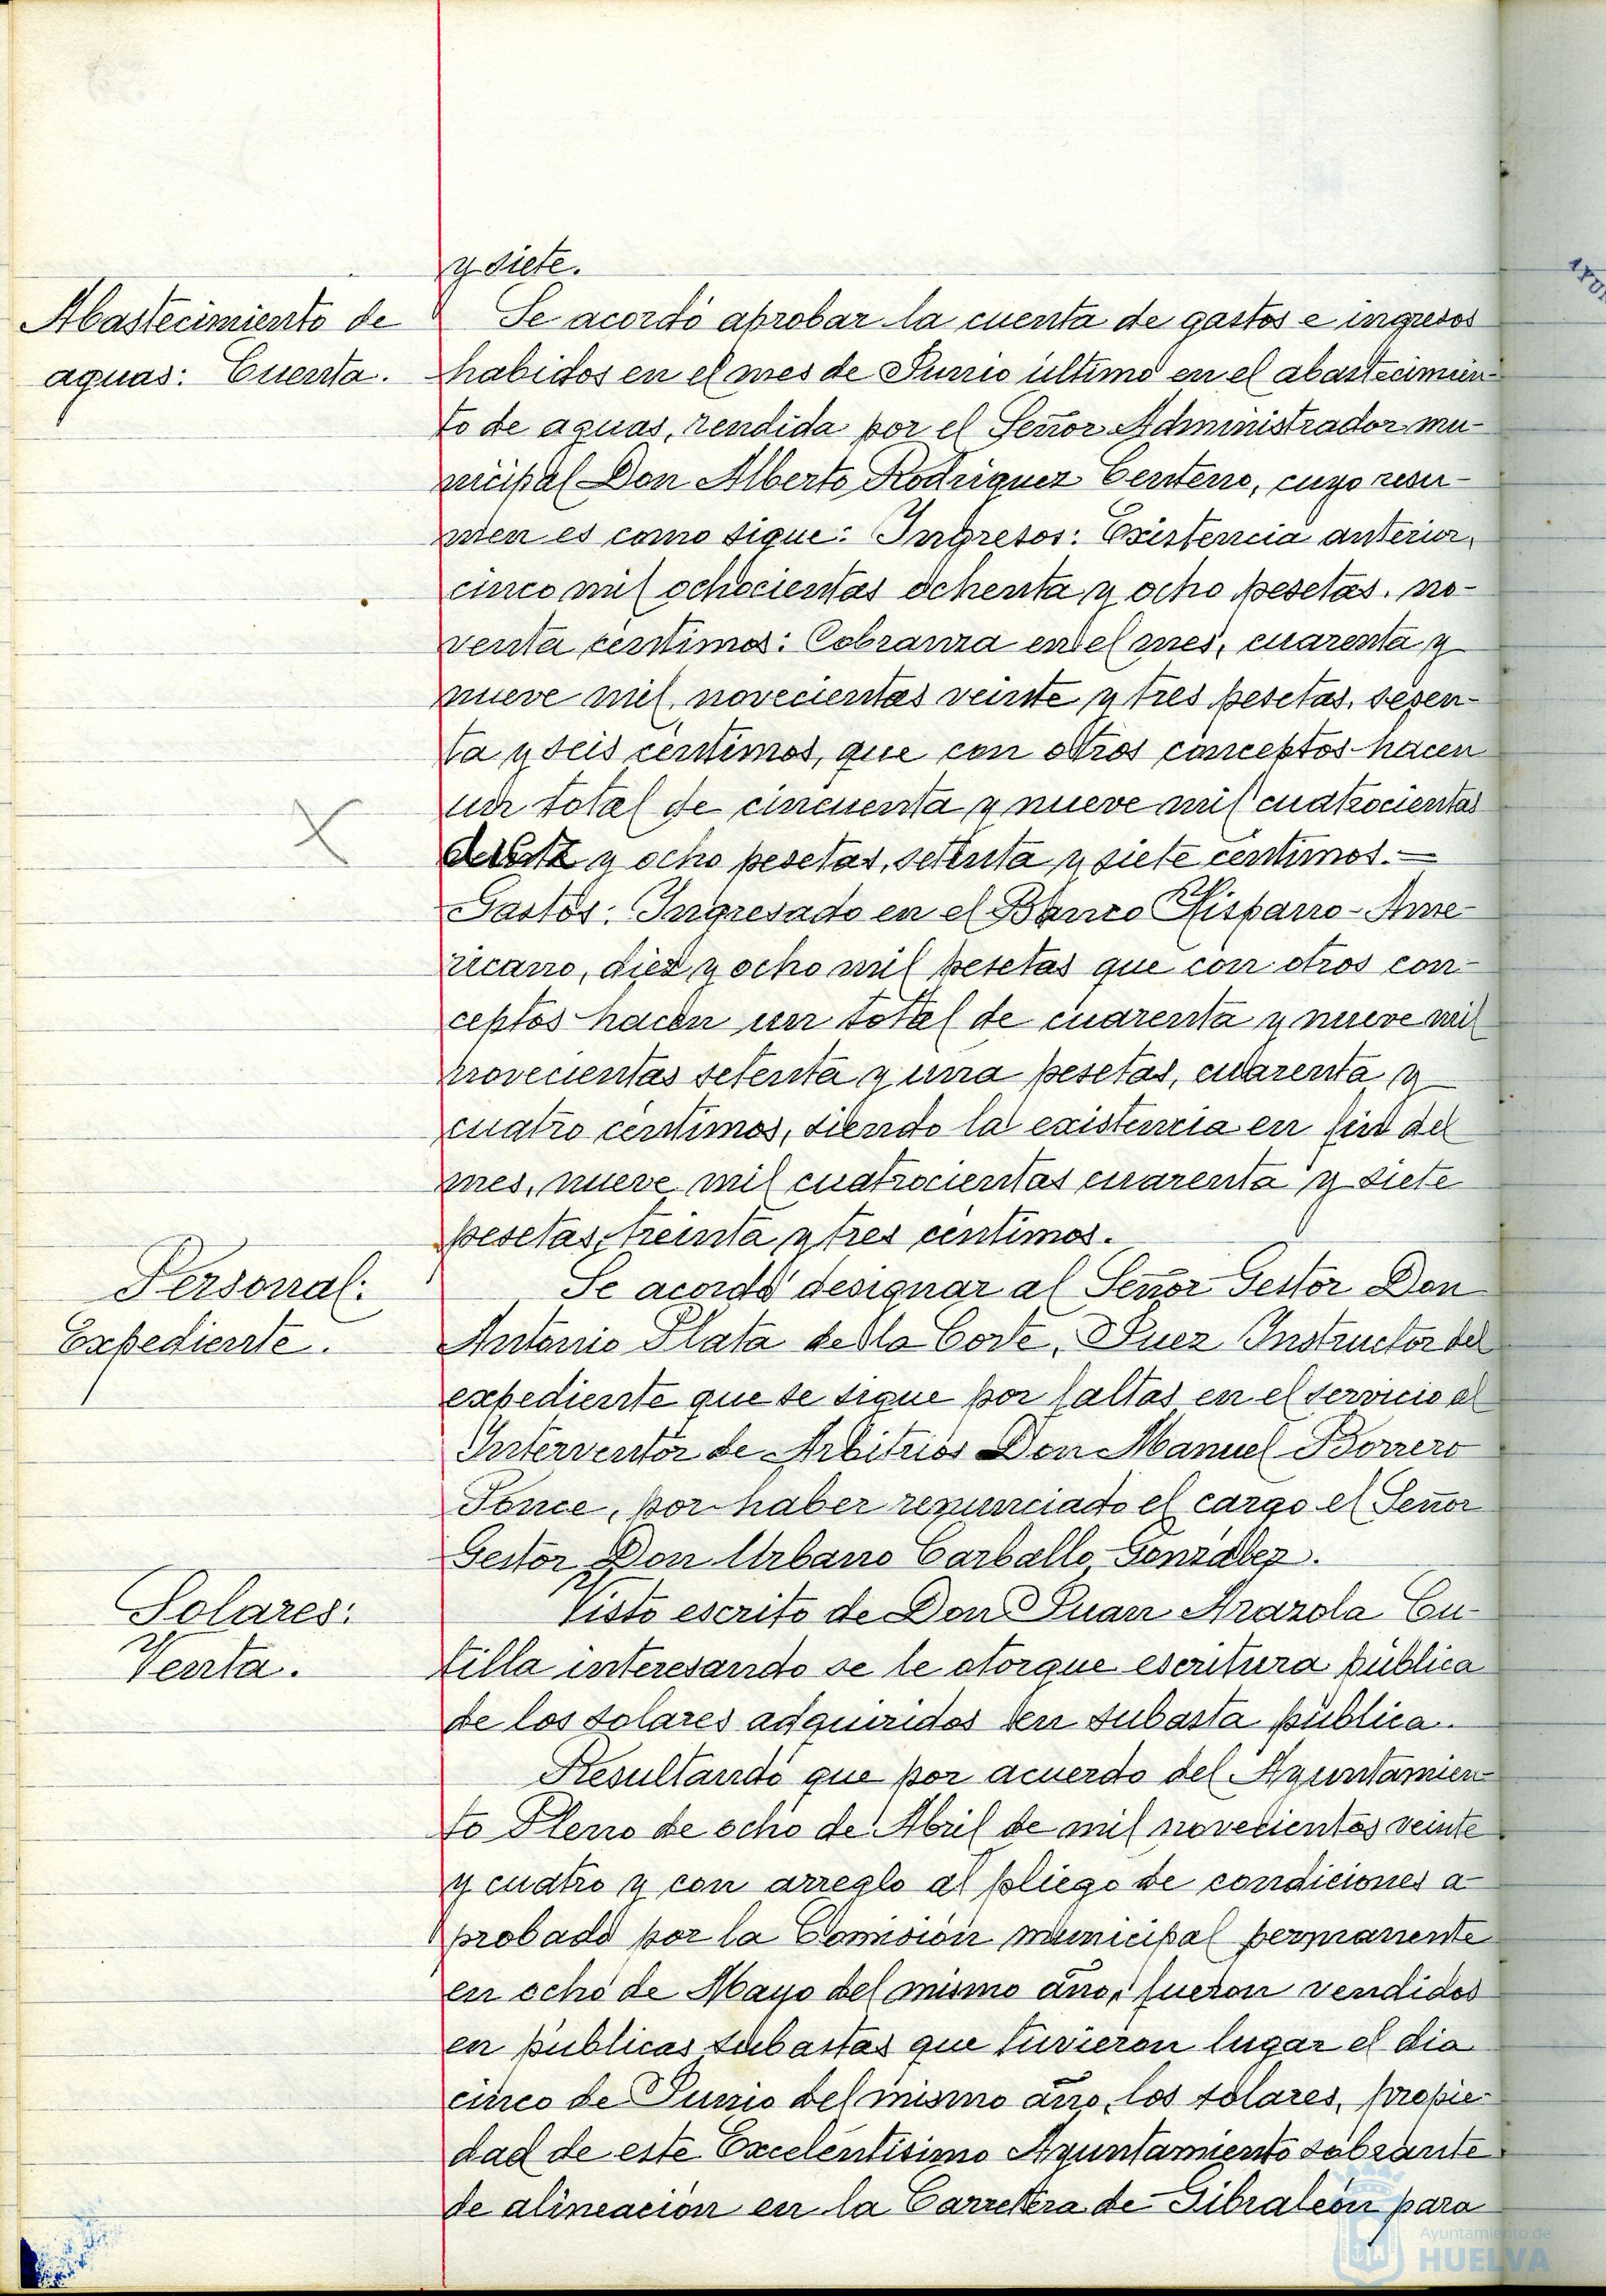 y siete.
Abastecimiento de
aguas: Cuenta.
Se acordó aprobar la cuenta de gastos e ingresos
habidos en el mes de Junio último en el abastecimien-
to de aguas, rendida por el Señor Administrador mu-
nicipal Don Alberto Rodriguez Centeno, cuyo resu-
men es como sigue: Ingresos: Existencia anterior,
cinco mil ochocientas ochenta y ocho pesetas, no-
venta centimos: Cobranza en el mes, cuarenta y
nueve mil, novecientas veinte y tres pesetas, sesen-
ta y seis centimos, que con otros conceptos hacen
un total de cincuenta y nueve mil cuatrocientas
y ocho pesetas, setenta y siete centimos.—
Gastos: Ingresado en el Banco Hispano-Ame-
ricano, diez y ocho mil pesetas que con otros con-
ceptos hacen un total de cuarenta y nueve mil
novecientas setenta y una pesetas, cuarenta y
cuatro centimos, siendo la existencia en fin del
mes, nueve mil cuatrocientas cuarenta y siete
pesetas, treinta y tres centimos.
Personal:
Expediente.
Se acordó designar al Señor Gestor Don
Antonio Plata de la Corte, Juez Instructor del
expediente que se sigue por faltas en el servicio al
Interventor de Arbitrios Don Manuel Borrero
Ponce, por haber renunciado el cargo el Señor
Gestor Don Urbano Carballo González.
Solares:
Venta.
Visto escrito de Don Juan Arazola Cu-
tilla interesando se le otorgue escritura pública
de los solares adquiridos en subasta pública.
Resultando que por acuerdo del Ayuntamien-
to Pleno de ocho de Abril de mil novecientos veinte
y cuatro y con arreglo al pliego de condiciones a
probado por la Comisión municipal permanente
en ocho de Mayo del mismo año, fueron vendidos
en públicas subastas que tuvieron lugar el dia
cinco de Junio del mismo año, los solares, propie-
dad de este Excelentisimo Ayuntamiento sobrante
de alineación en la Carretera de Gibraleón para
Ayuntamiento de
HUELVA